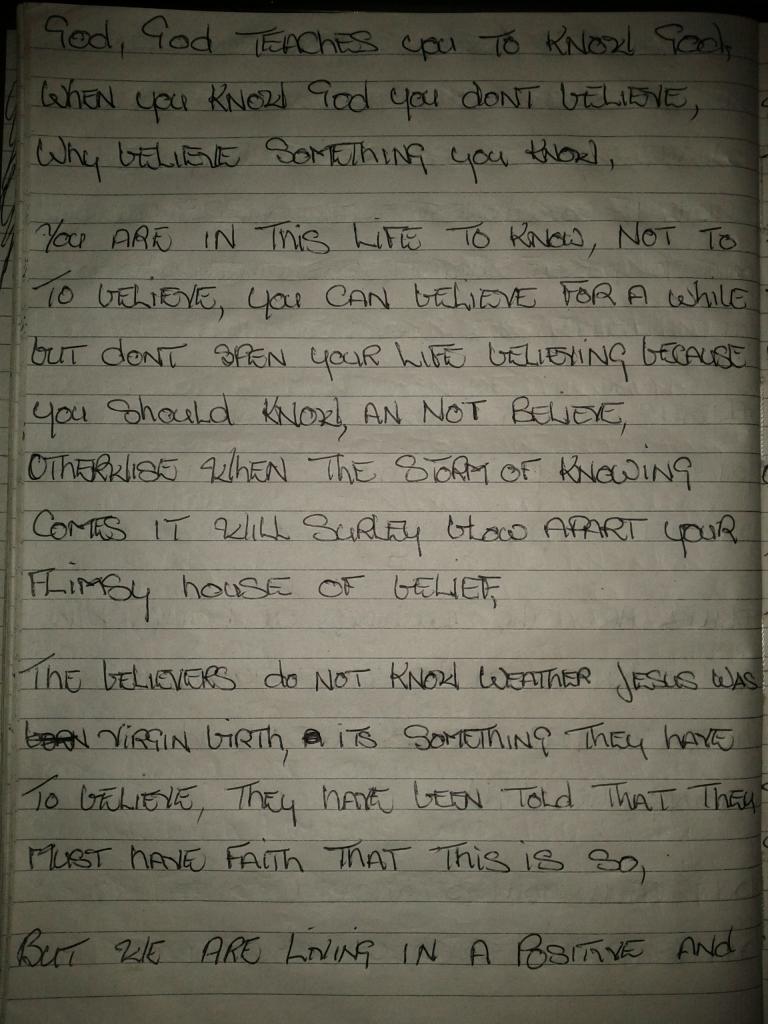 God, God TEACHES you TO KNOW God,
WHEN you KNOW God you dONT bELIEVE,
Why bELIEVE SOMETHING you KNOW,
You ARE IN This LIFE TO KNOW, NOT TO
TO bELIEVE, you CAN bELIEVE FOR A While
bUT dONT SPEN youR LIFE bELIEVING bECAUSE
you Should KNOW, AN NOT BELIEVE,
OTHERWISE WHEN THE STORM OF KNOWING
COMES IT WILL SURLEY bLOW APART youR
FLIMSY hOUSE OF bELIEF,
THE bELIEVERS do NOT KNOW WEATHER JESUS WAS
bORN VIRGIN bIRTh, ITS SOMETHING They hAVE
TO bELIEVE, They hAVE bEEN TOLd THAT They
MUST hAVE FAITh THAT This is SO,
BUT WE ARE LIVING IN A POSITIVE ANd